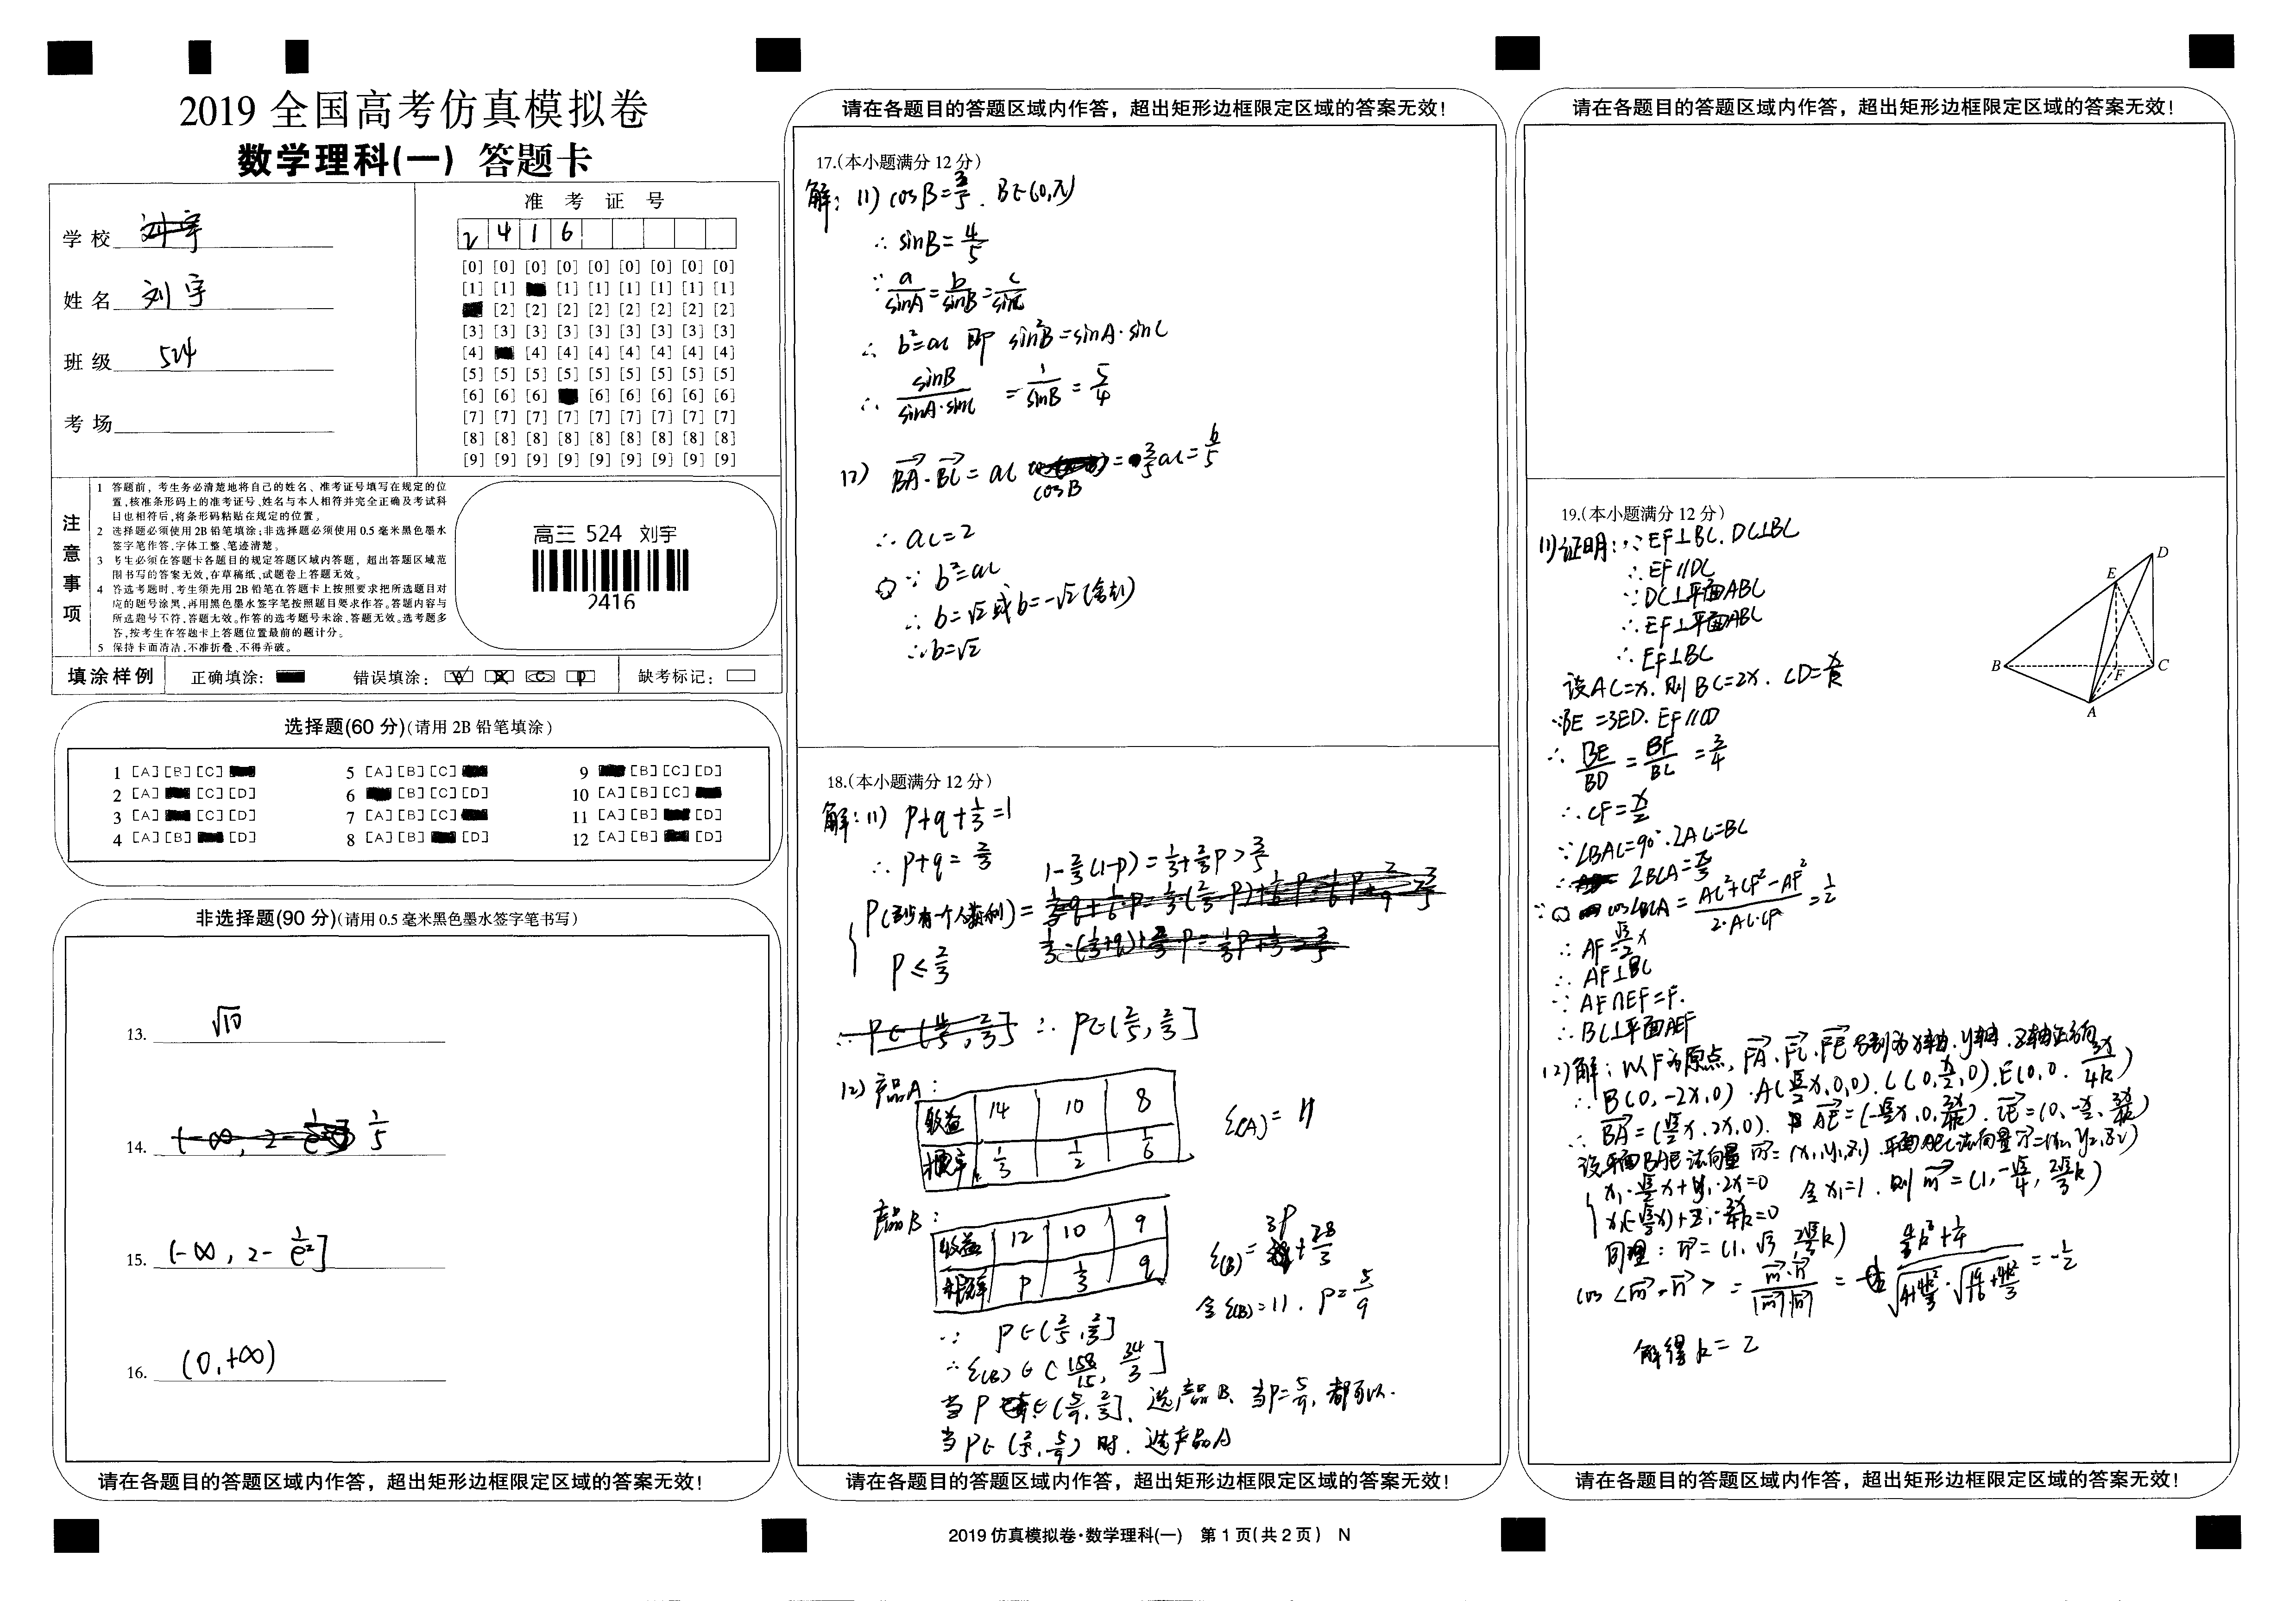 2019 全国高考仿真模拟卷
数学理科(一) 答题卡
学校
姓名 刘宇
班级 524
考场
准考证号
2 4 1 6
[0] [0] [0] [0] [0] [0] [0] [0] [0]
[1] [1] [1] [1] [1] [1] [1] [1]
[2] [2] [2] [2] [2] [2] [2] [2]
[3] [3] [3] [3] [3] [3] [3] [3] [3]
[4] [4] [4] [4] [4] [4] [4] [4]
[5] [5] [5] [5] [5] [5] [5] [5] [5]
[6] [6] [6] [6] [6] [6] [6] [6]
[7] [7] [7] [7] [7] [7] [7] [7] [7]
[8] [8] [8] [8] [8] [8] [8] [8] [8]
[9] [9] [9] [9] [9] [9] [9] [9] [9]
注意事项
1 答题前，考生务必清楚地将自己的姓名、准考证号填写在规定的位
置，核准条形码上的准考证号、姓名与本人相符并完全正确及考试科
目也相符后，将条形码粘贴在规定的位置。
2 选择题必须使用2B铅笔填涂；非选择题必须使用0.5毫米黑色墨水
签字笔作答，字体工整、笔迹清楚。
3 考生必须在答题卡各题目的规定答题区域内答题，超出答题区域范
围书写的答案无效，在草稿纸、试题卷上答题无效。
4 答选考题时，考生须先用2B铅笔在答题卡上按照要求把所选题目对
应的题号涂黑，再用黑色墨水签字笔按照题目要求作答。答题内容与
所选题号不符，答题无效。作答的选考题号未涂，答题无效。选考题多
答，按考生在答题卡上答题位置最前的题计分。
5 保持卡面清洁，不准折叠、不得弄破。
高三 524 刘宇
2416
填涂样例 正确填涂： 错误填涂： 缺考标记：
选择题(60 分)(请用 2B 铅笔填涂)
1 [A] [B] [C] 5 [A] [B] [C] 9 [B] [C] [D]
2 [A] [C] [D] 6 [B] [C] [D] 10 [A] [B] [C]
3 [A] [C] [D] 7 [A] [B] [C] 11 [A] [B] [D]
4 [A] [B] [D] 8 [A] [B] [D] 12 [A] [B] [D]
非选择题(90 分)(请用 0.5 毫米黑色墨水签字笔书写)
13. √10
14. 1/5
15. (-∞, 2-1/e²]
16. (0,+∞)
请在各题目的答题区域内作答，超出矩形边框限定区域的答案无效！
请在各题目的答题区域内作答，超出矩形边框限定区域的答案无效！
17.(本小题满分 12 分)
解：(1) cosB=3/5. B∈(0,π)
∴ sinB=4/5
∵ a/sinA=b/sinB=c/sinC
∴ b²=ac 即 sin²B=sinA·sinC
∴ sinB/(sinA·sinC) = 1/sinB = 5/4
(2) BA·BC=ac cosB=3/5ac=6/5
∴ ac=2
∵ b²=ac
∴ b=√2或b=-√2(舍去)
∴ b=√2
18.(本小题满分 12 分)
解：(1) p+q+1/3=1
∴ p+q=2/3
P(至少有一个人获利)= 1-2/3(1-p)=1/3+2/3p>3/5
p≤2/3
∴ p∈(2/5, 2/3]
(2) 产品A：
收益 14 10 8
概率 1/3 1/2 1/6
E(A)=11
产品B：
收益 12 10 9
概率 p 1/3 q
E(B)=3p+28/3
令E(B)=11. p=5/9
∵ p∈(2/5, 2/3]
∴ E(B)∈(158/15, 34/3]
当p∈(5/9, 2/3]，选产品B、当p=5/9，都可以.
当p∈(2/5, 5/9)时，选产品A
请在各题目的答题区域内作答，超出矩形边框限定区域的答案无效！
2019 仿真模拟卷·数学理科(一) 第 1 页(共 2 页) N
请在各题目的答题区域内作答，超出矩形边框限定区域的答案无效！
19.(本小题满分 12 分)
(1)证明：∵ EF⊥BC. DC⊥BC
∴ EF∥DC
∵ DC⊥平面ABC
∴ EF⊥平面ABC
∴ EF⊥BC
设AC=x. 则BC=2x. CD=x/k
∵BE=3ED. EF∥CD
∴ BE/BD=BF/BC=3/4
∴ CF=x/2
∵ ∠BAC=90°. 2AC=BC
∴ ∠BCA=π/3
∵ cos∠BCA=(AC²+CF²-AF²)/(2·AC·CF)=1/2
∴ AF=√3/2x
∴ AF⊥BC
∵ AF∩EF=F.
∴ BC⊥平面AEF
(2)解：以F为原点，FA、FC、FE分别为x轴、y轴、z轴正方向
∴ B(0,-2x,0). A(√3/2x,0,0). C(0,x/2,0). E(0,0,3x/4k)
∴ BA=(√3/2x,2x,0). AE=(-√3/2x,0,3x/4k). CE=(0,-x/2,3x/4k)
设平面BAE法向量m=(x₁,y₁,z₁). 平面AEC法向量n=(x₂,y₂,z₂)
x₁·√3/2x+y₁·2x=0 令x₁=1. 则m=(1,-√3/4,2√3/3k)
x₁(-√3/2x)+z₁·3x/4k=0
同理：n=(1,√3/3,2√3/3k)
cos<m,n>=m·n/|m||n|= =-1/2
解得k=2
B E D F C A
请在各题目的答题区域内作答，超出矩形边框限定区域的答案无效！